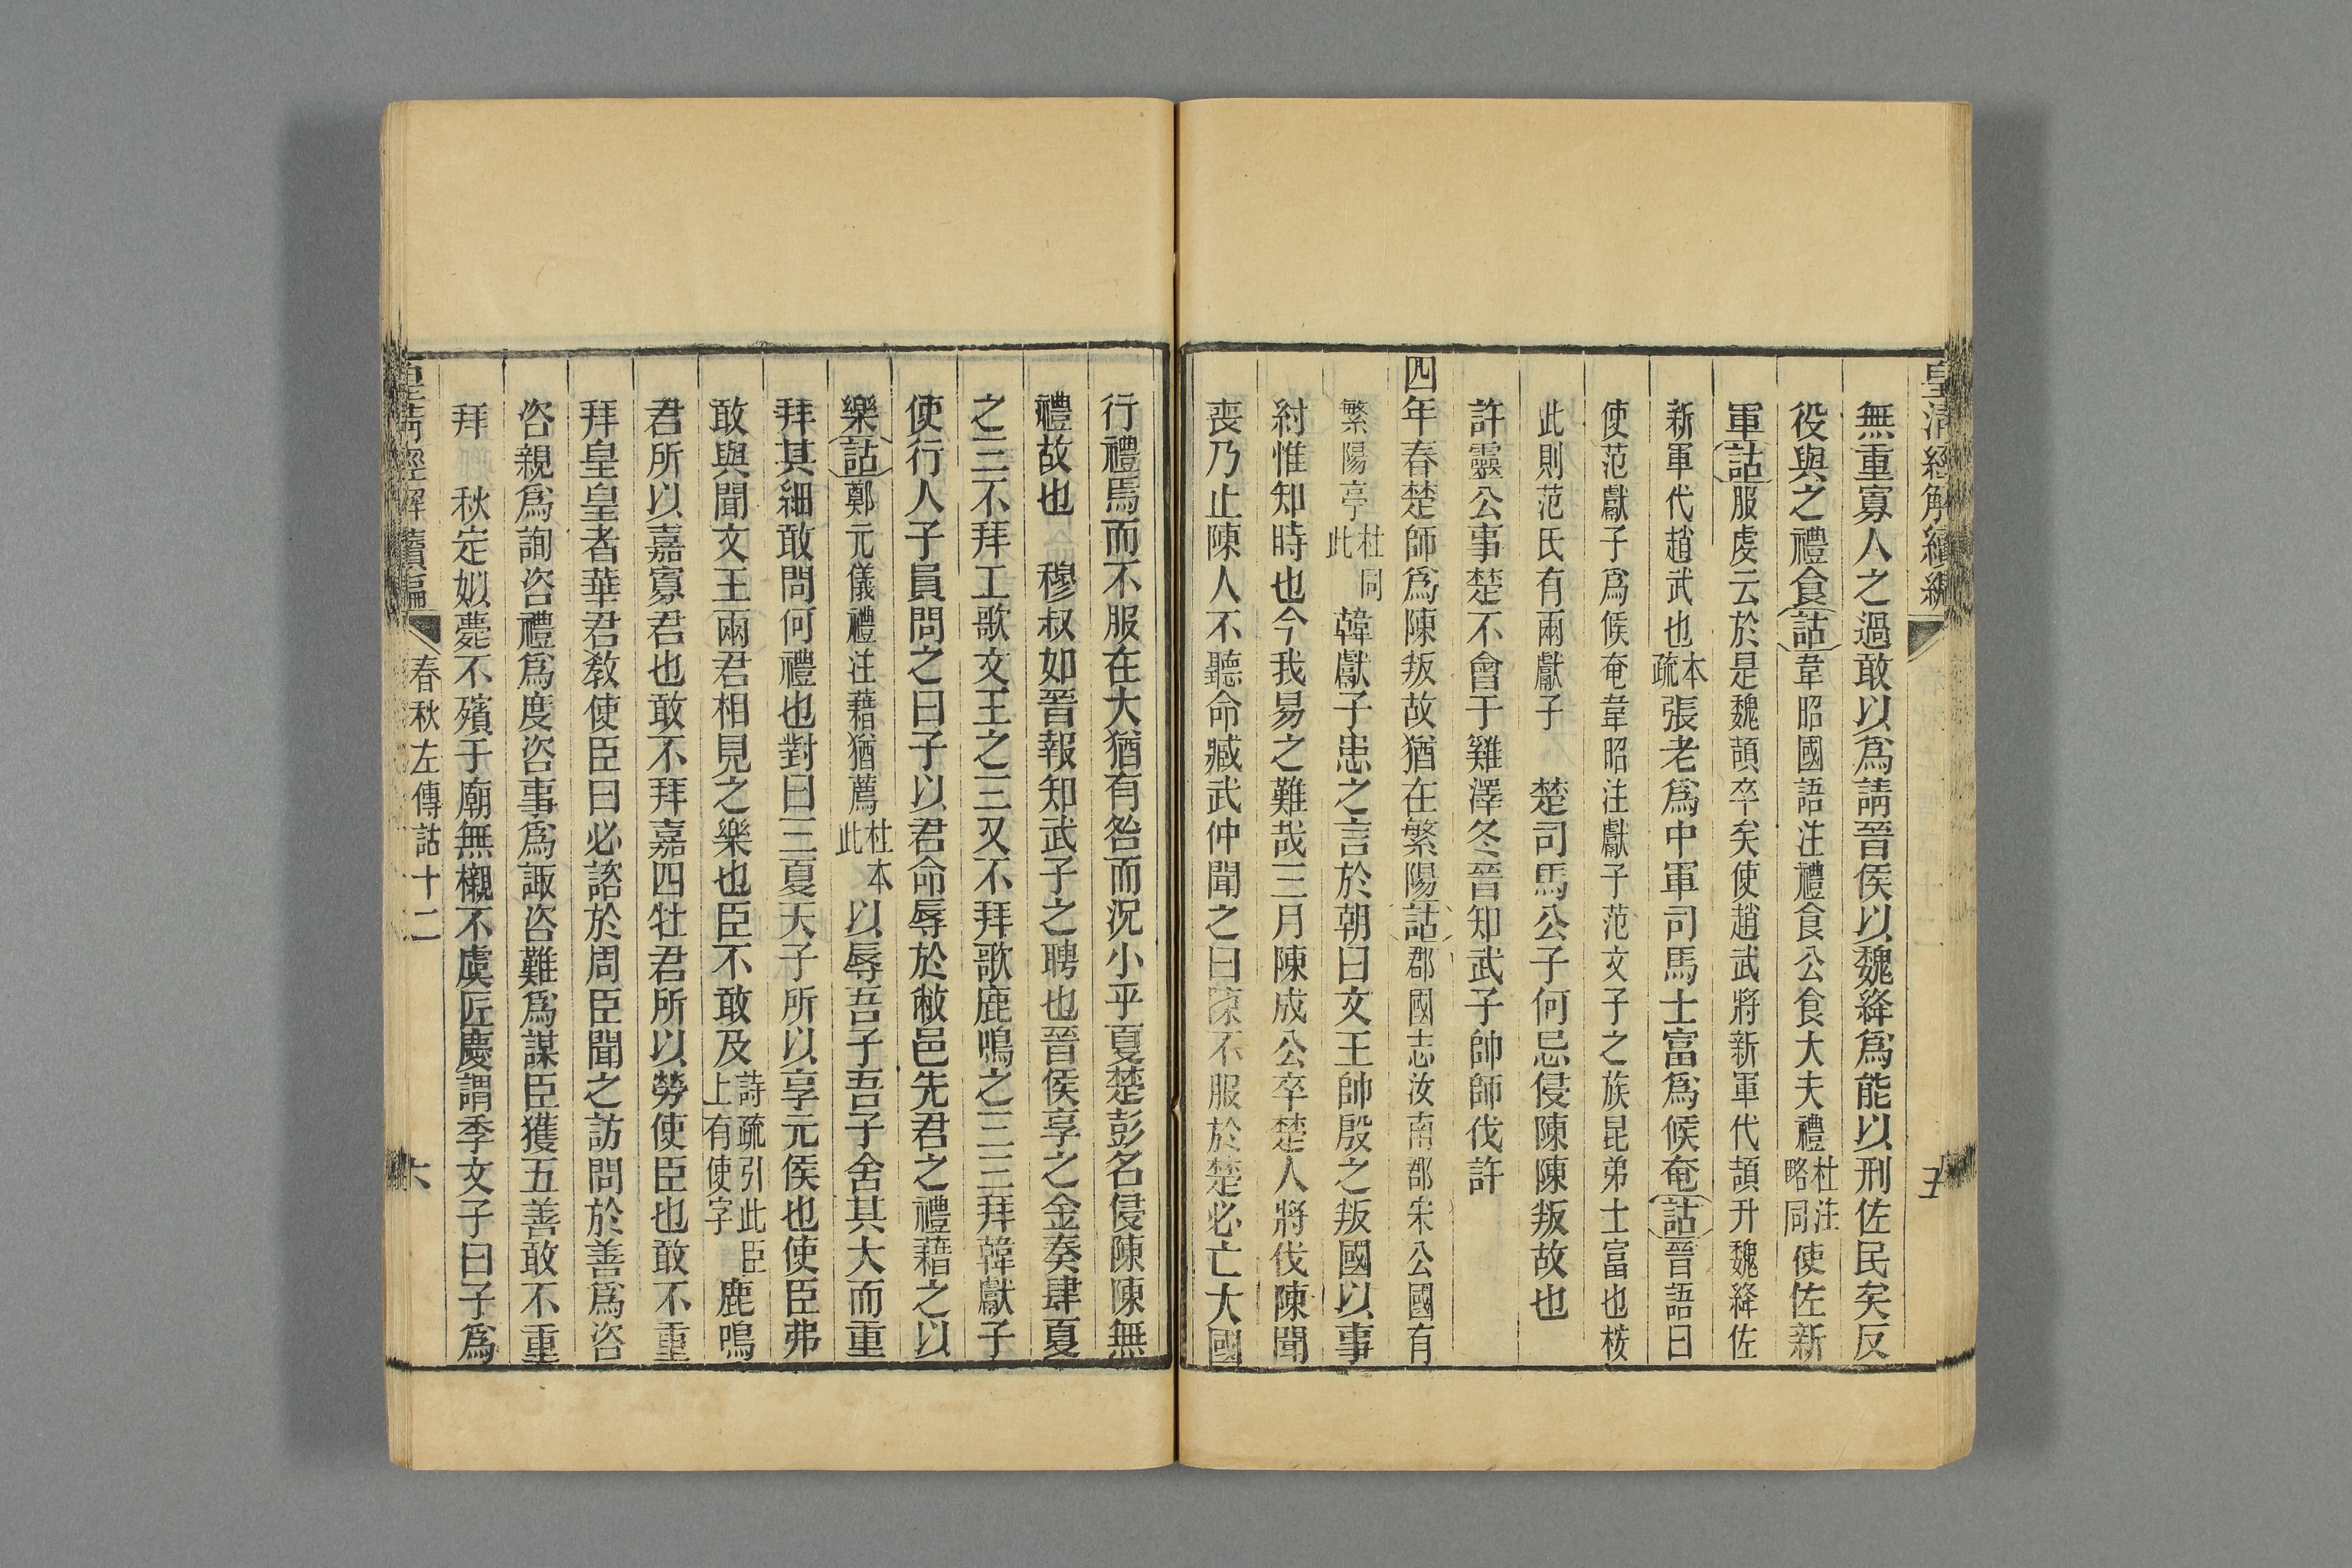 皇清經解續編
五
無重寡人之過敢以爲請晉侯以魏絳爲能以刑佐民矣反
役與之禮食詁韋昭國語注禮食公食大夫禮杜注略同使佐新
軍詁服虔云於是魏頡卒矣使趙武將新軍代頡升魏絳佐
新軍代趙武也本疏張老爲中軍司馬士富爲候奄詁晉語曰
使范獻子爲候奄韋昭注獻子范文子之族昆弟士富也核
此則范氏有兩獻子 楚司馬公子何忌侵陳陳叛故也
許靈公事楚不會于雞澤冬晉知武子帥師伐許
四年春楚師爲陳叛故猶在繁陽詁郡國志汝南郡宋公國有
繁陽亭杜同此韓獻子患之言於朝曰文王帥殷之叛國以事
紂惟知時也今我易之難哉三月陳成公卒楚人將伐陳聞
喪乃止陳人不聽命臧武仲聞之曰陳不服於楚必亡大國
行禮焉而不服在大猶有咎而況小乎夏楚彭名侵陳陳無
禮故也 穆叔如晉報知武子之聘也晉侯享之金奏肆夏
之三不拜工歌文王之三又不拜歌鹿鳴之三三拜韓獻子
使行人子員問之曰子以君命辱於敝邑先君之禮藉之以
樂詁鄭元儀禮注藉猶薦杜本此以辱吾子吾子舍其大而重
拜其細敢問何禮也對曰三夏天子所以享元侯也使臣弗
敢與聞文王兩君相見之樂也臣不敢及詩疏引此臣上有使字鹿鳴
君所以嘉寡君也敢不拜嘉四牡君所以勞使臣也敢不重
拜皇皇者華君教使臣曰必諮於周臣聞之訪問於善爲咨
咨親爲詢咨禮爲度咨事爲諏咨難爲謀臣獲五善敢不重
拜 秋定姒薨不殯于廟無櫬不虞匠慶謂季文子曰子爲
皇清經解續編
春秋左傳詁十二
六